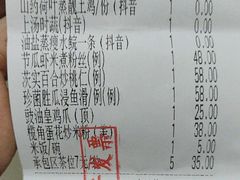 山药荷叶蒸靓土鸡/份(抖音) 1 0.00
上汤时蔬(抖音) 1 0.00
油盐蒸瘦水皖一条(抖音) 1 0.00
节瓜虾米煮粉丝(例) 1 48.00
茨实百合炒桃仁(例) 1 58.00
珍菌胜瓜浸鱼滑(例)(例) 1 58.00
豉油皇鸡爪(顶) 1 25.00
榄角蛋花炒米粉( 1 38.00
米饭/碗 1 5.00
来包区茶位7元 5 35.00